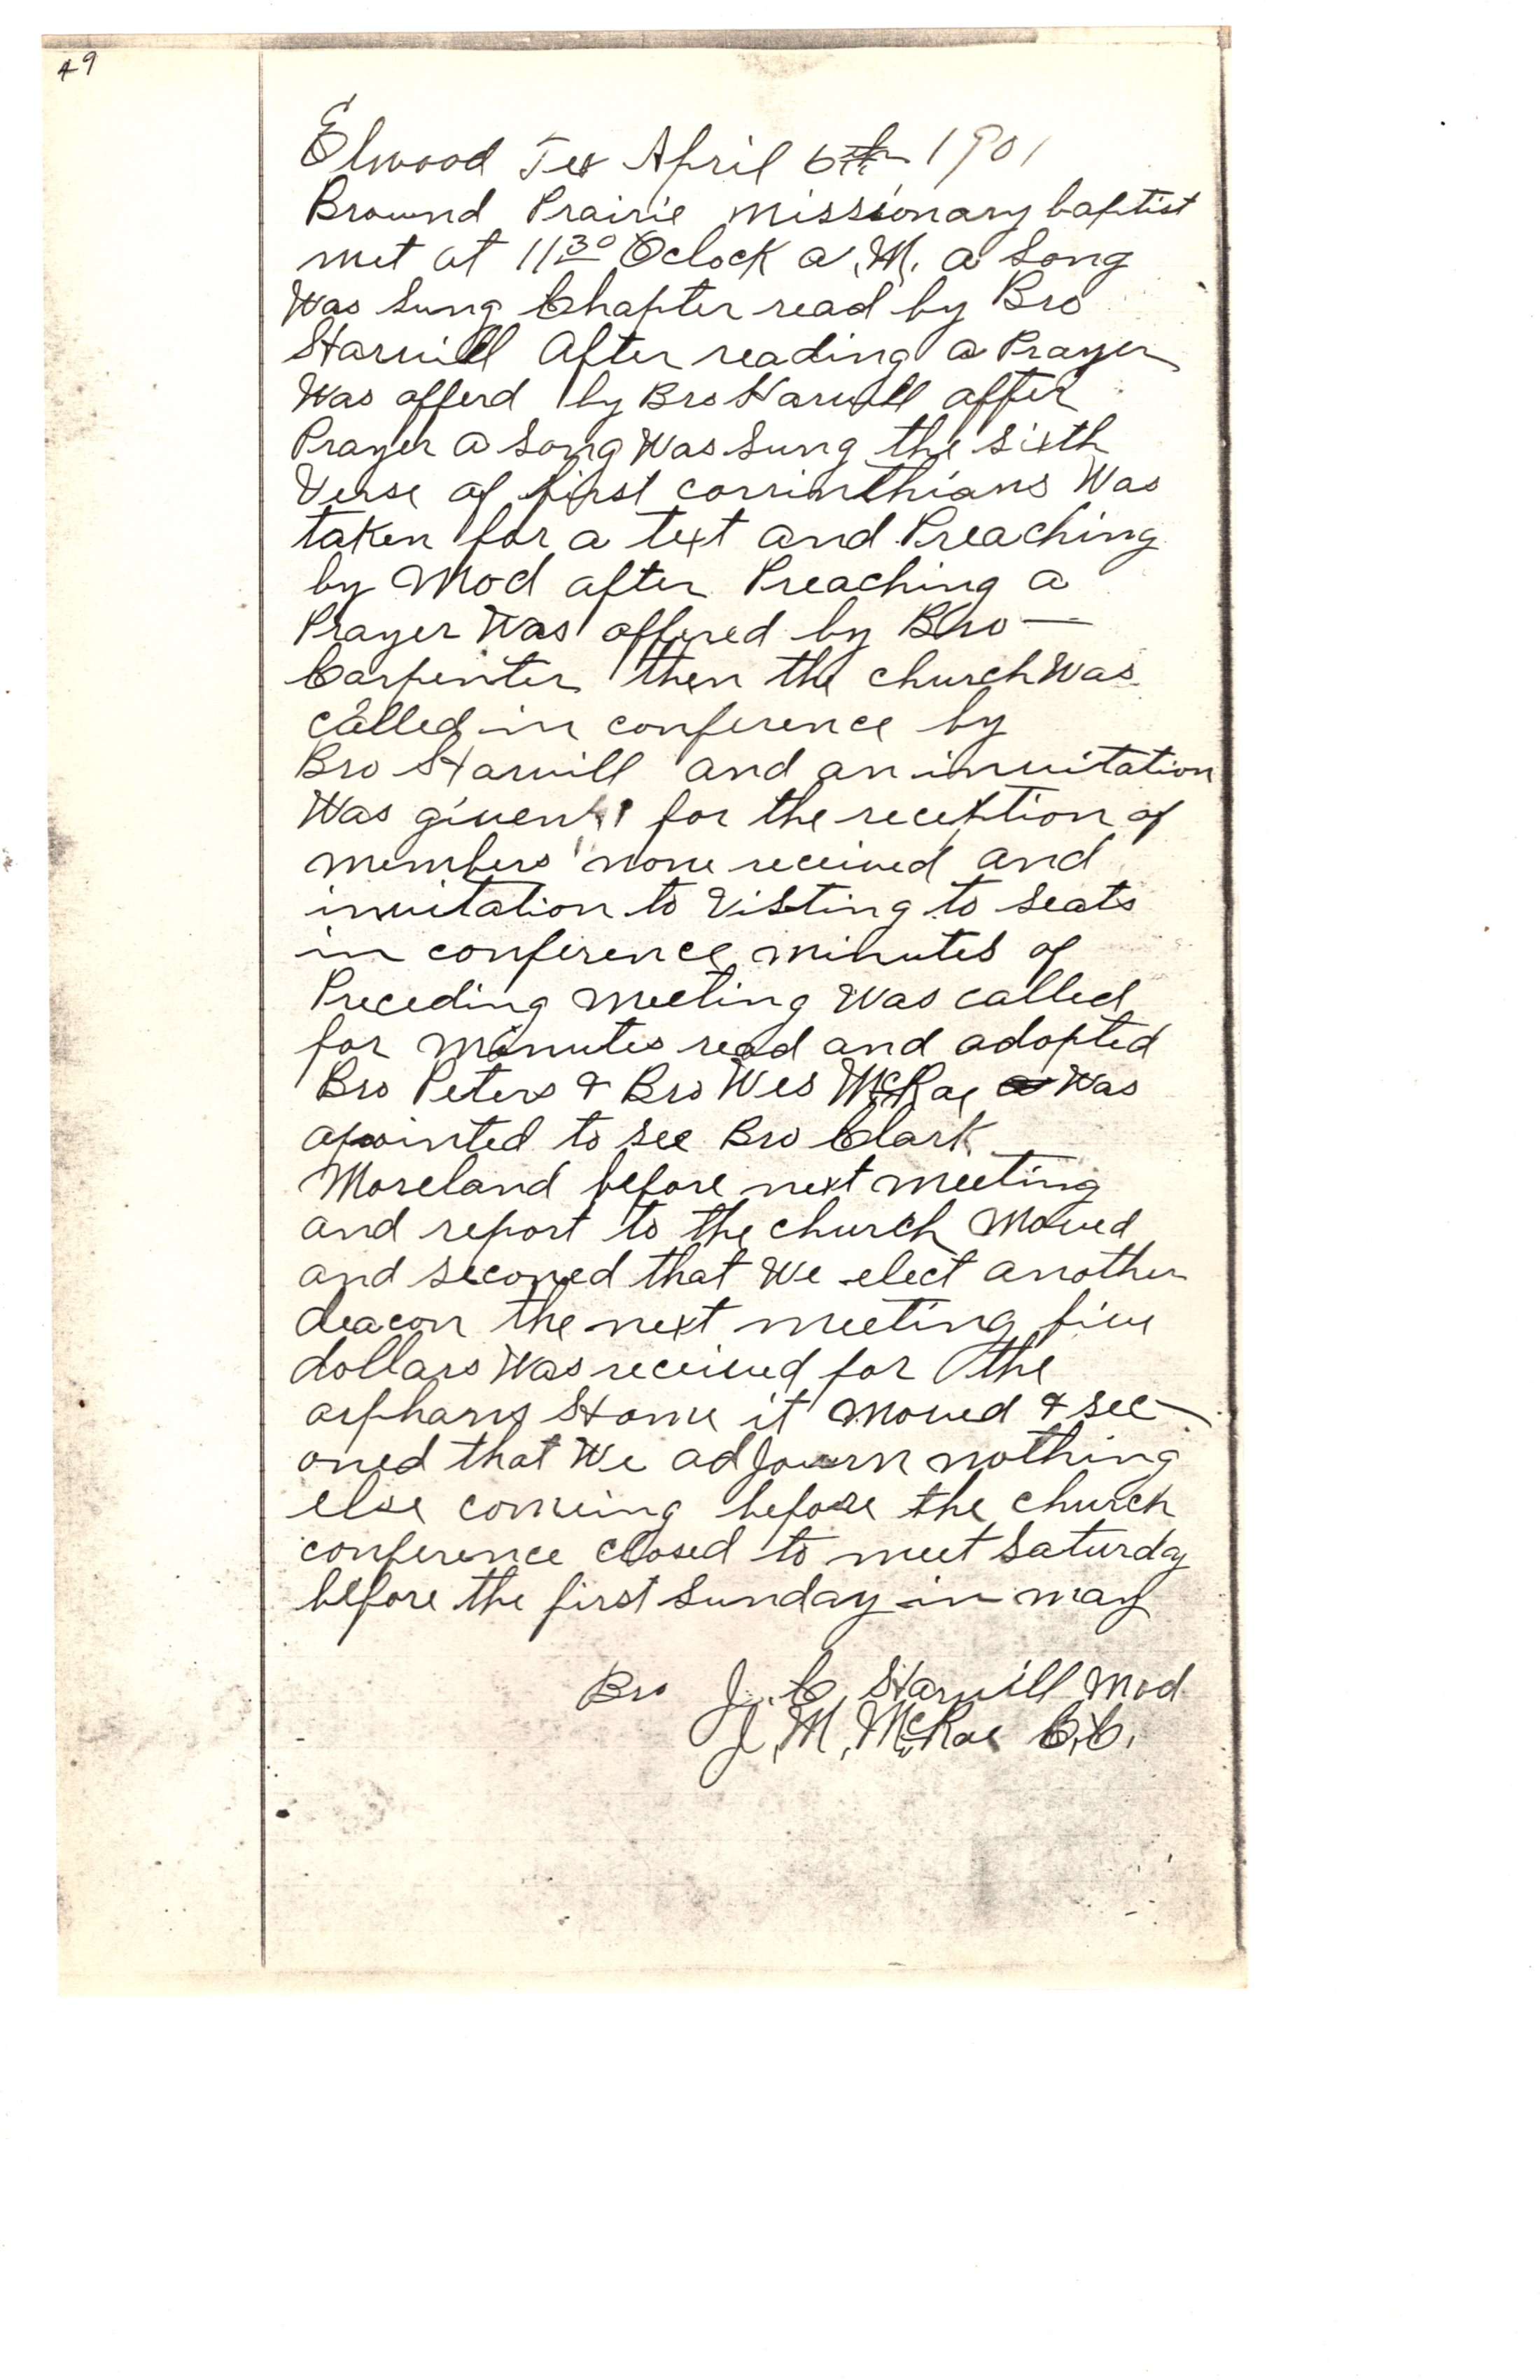 49
Elwood Tex April 6th 1901
Brownd Prairie missionary baptist
met at 11 30 Oclock a.M. a song
Was sung Chapter read by Bro
Harvill After reading a Prayer
Was offerd by Bro Harvill after
Prayer a song Was sung the sixth
Verse of first corrinthians Was
taken for a text and Preaching
by Mod after Preaching a
Prayer Was offered by Bro —
Carpenter then the church Was
called in conference by
Bro Harvill and an invitation
Was given for the reception of
members none received and
invitation to Visting to seats
in conference minutes of
Preceding meeting Was called
for minutes read and adopted
Bro Peters & Bro Wes McRae Was
apointed to see Bro Clark
Moreland before next meeting
and report to the church Moved
and seconed that We elect another
deacon the next meeting five
dollars Was received for the
orphans Home it moved & sec-
oned that We adjourn nothing
else comeing before the church
conference closed to meet Saturday
before the first Sunday in may
Bro J. C. Harvill Mod
J. M. McRae C.C.